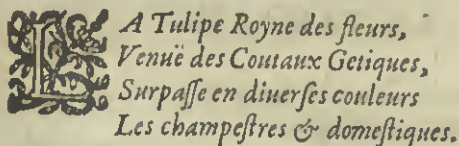 LA Tulipe Royne des fleurs,
Venuë des Coutaux Getiques,
Surpaſſe en diuerſes couleurs
Les champeſtres & domeſtiques.